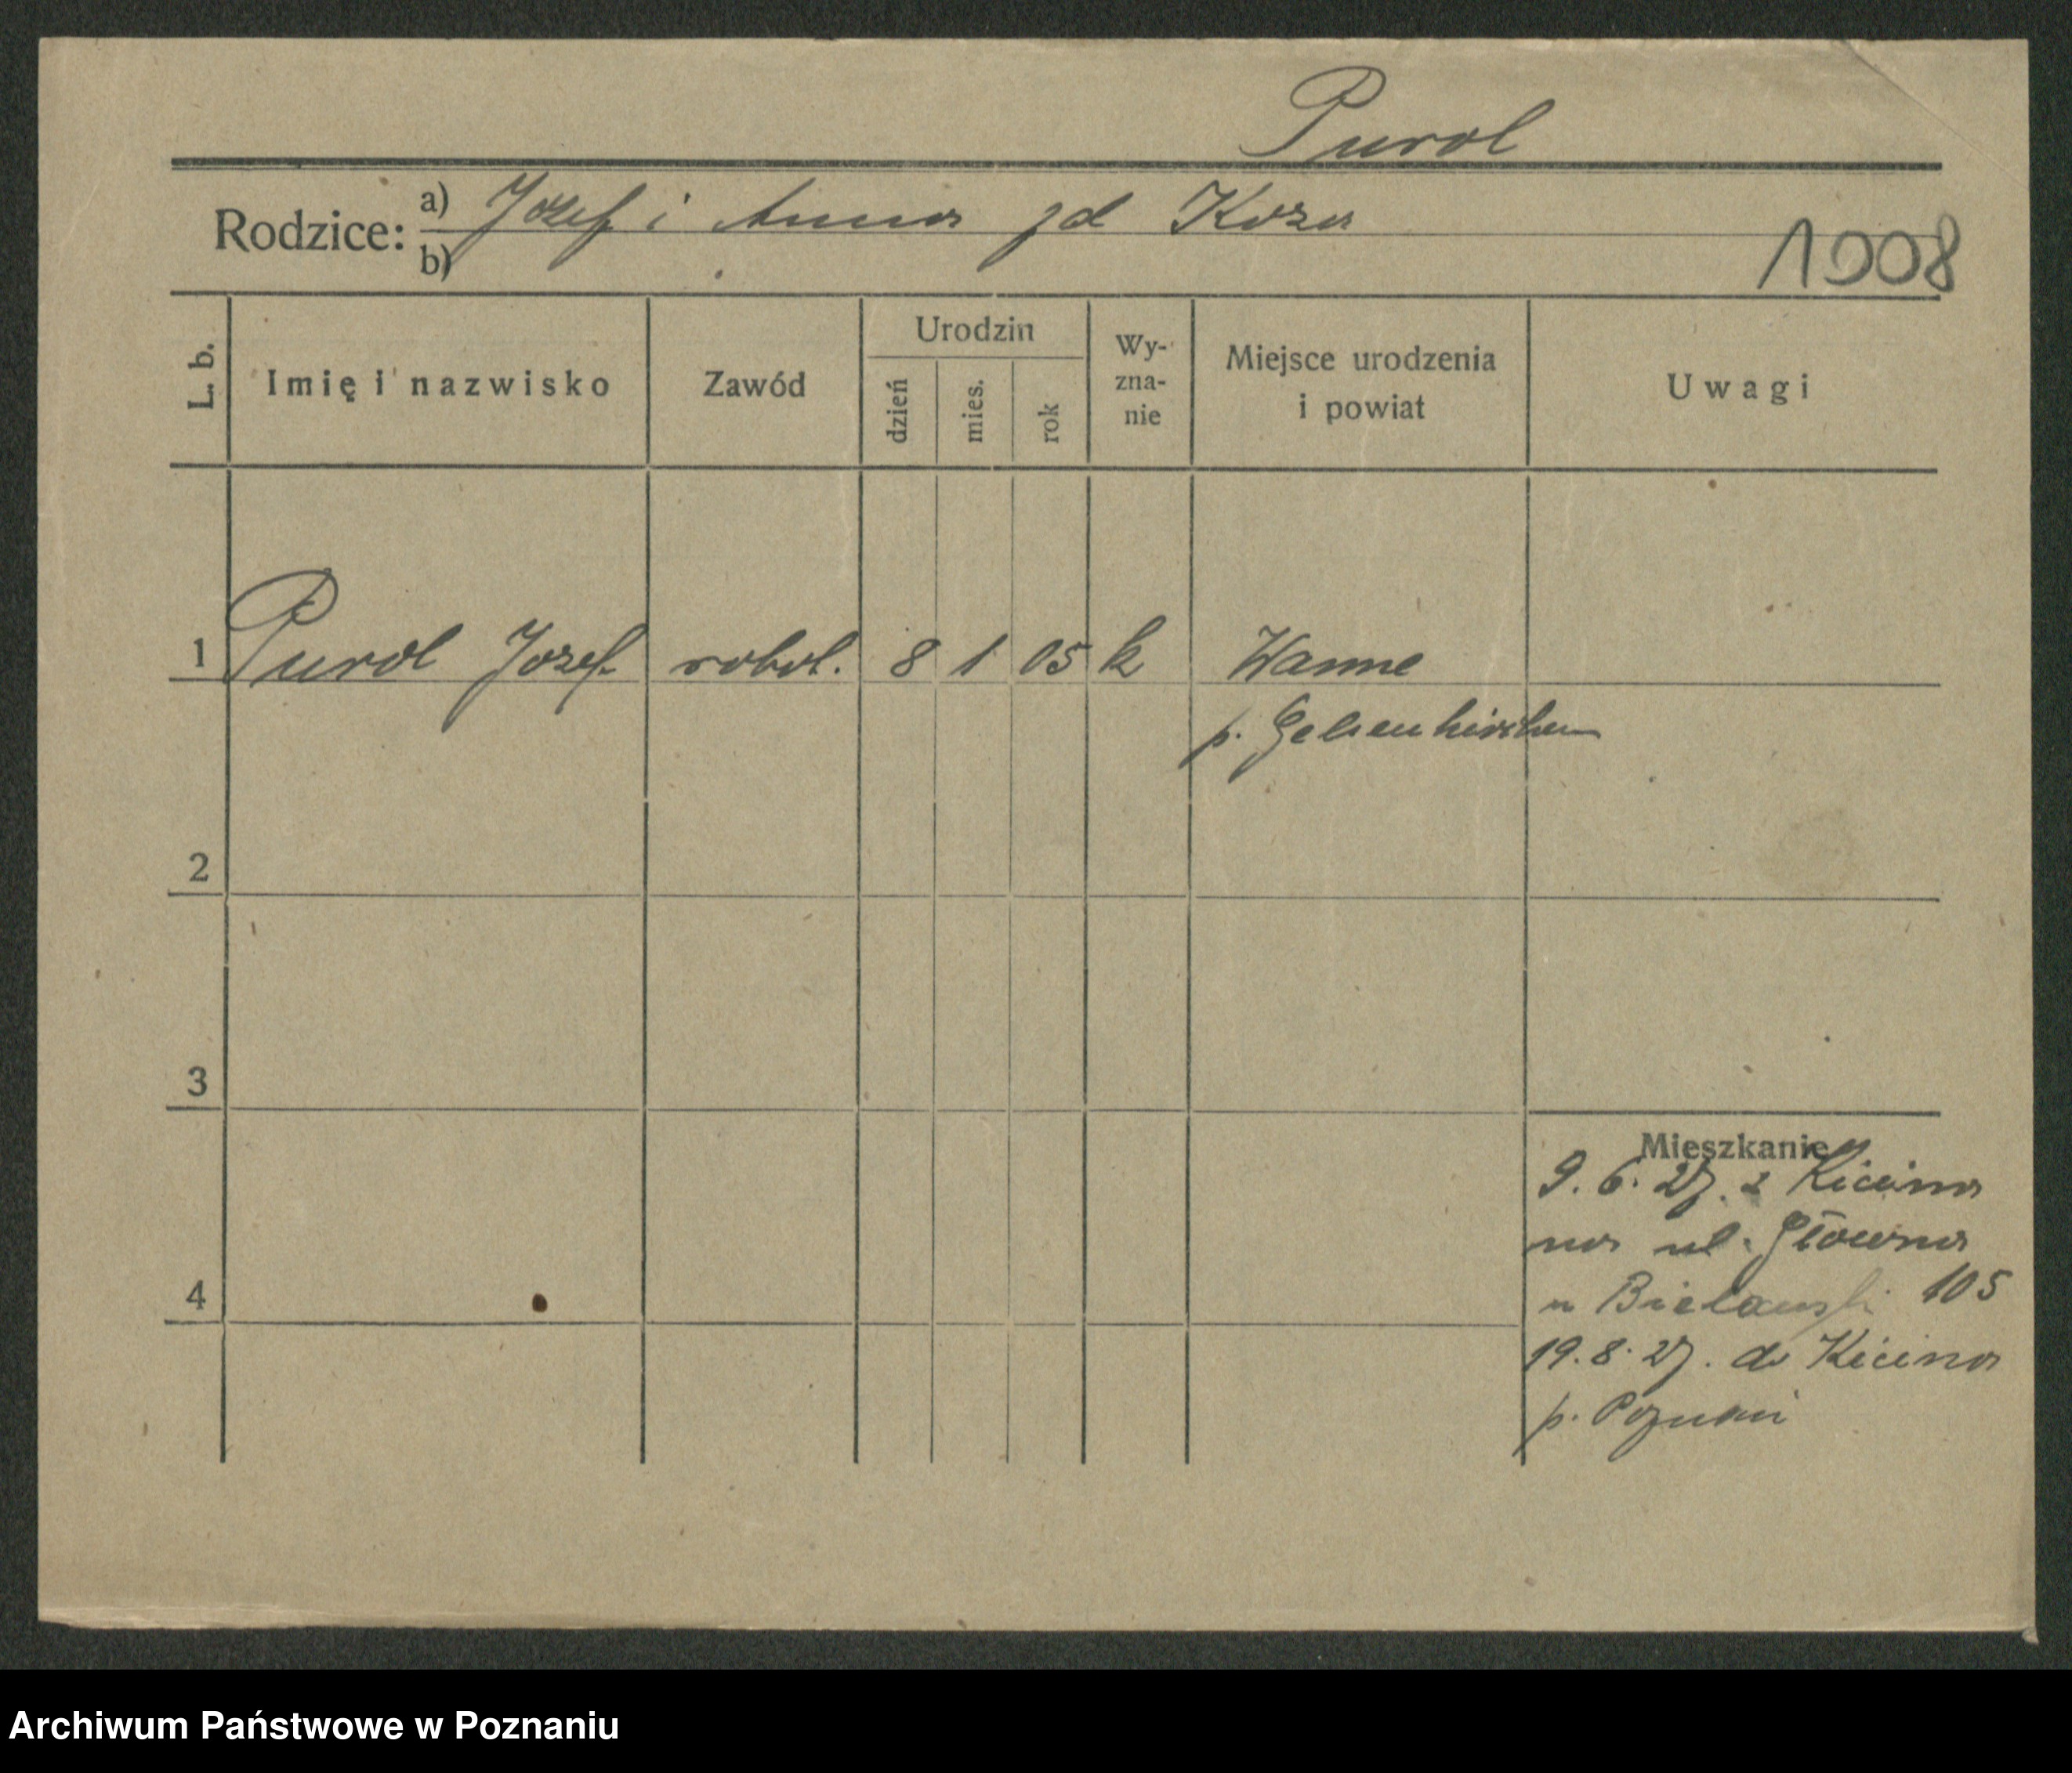 Purol
Rodzice: a) Jozef i Anna zd Koza
b)
1008
L. b. Imię i nazwisko Zawód Urodzin dzień mies. rok Wy-zna-nie Miejsce urodzenia i powiat Uwagi
1 Purol Jozef robot. 8 1 05 k Wanne
p. Gelsenkirchen
2
3
Mieszkanie
9. 6. 27. z Kicina
na ul. Główna
4 u Bielawski 105
19. 8. 27. do Kicina
p. Poznań
Archiwum Państwowe w Poznaniu